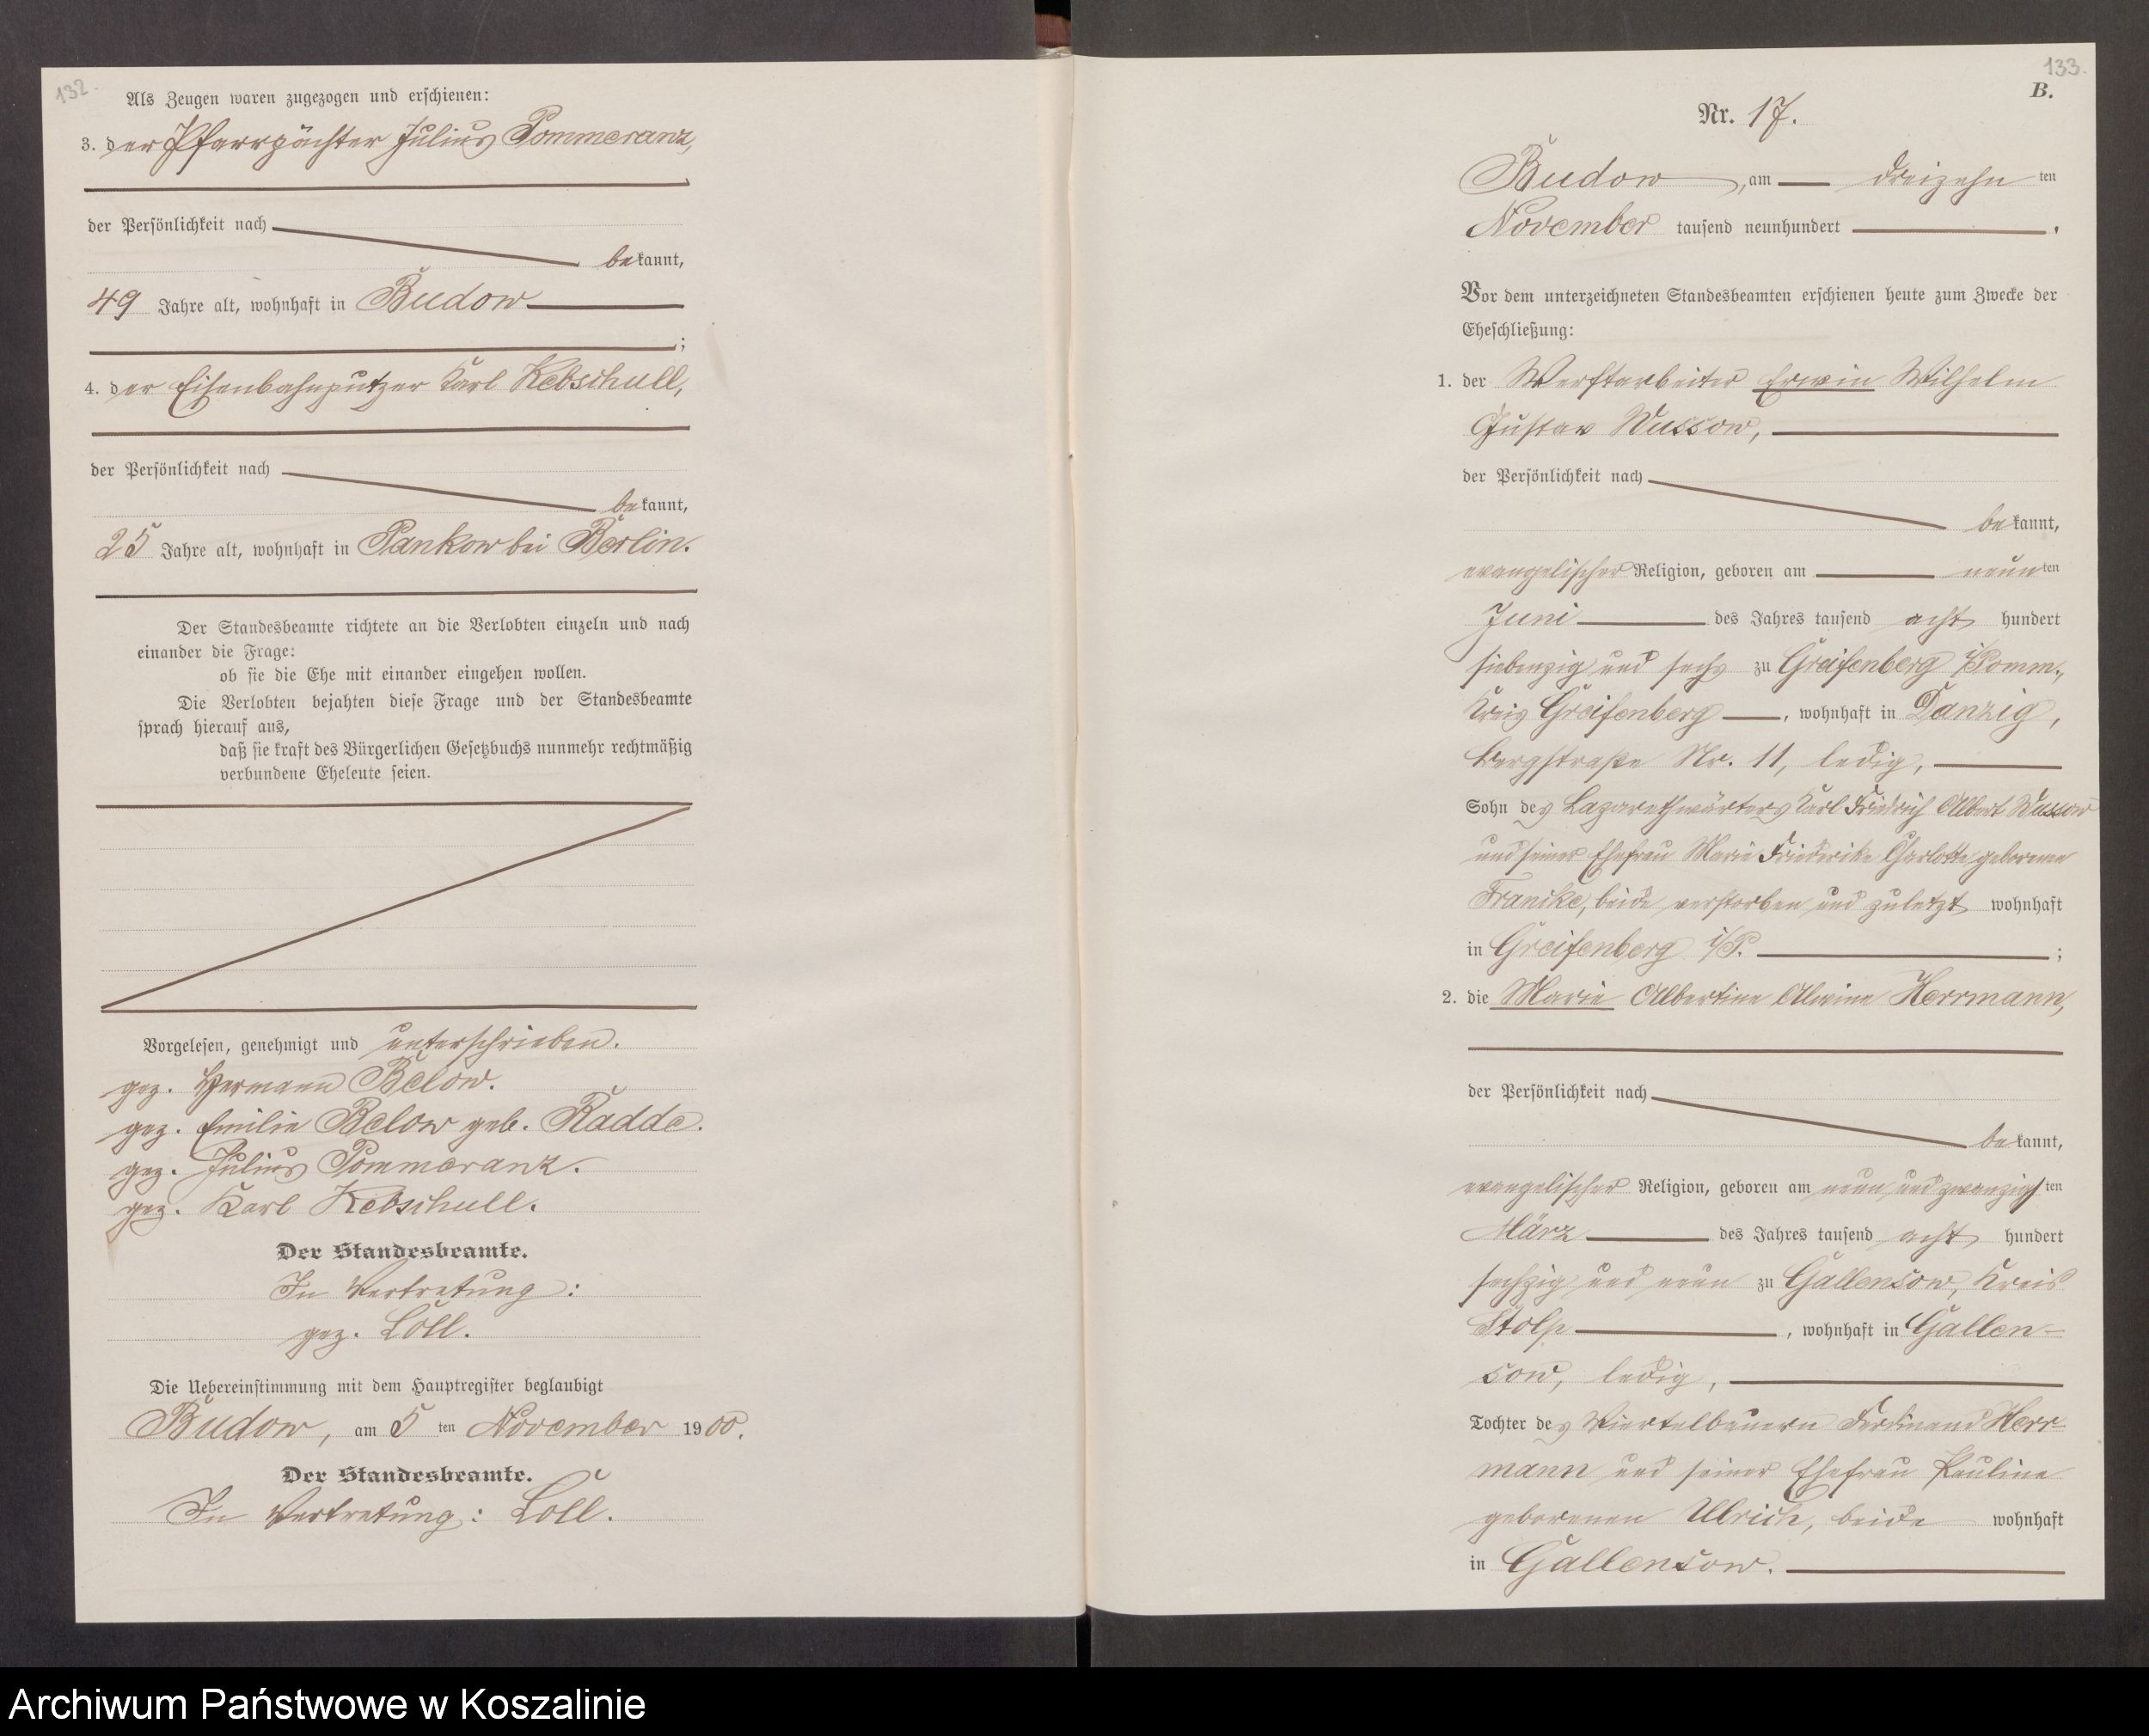 132.
Als Zeugen waren zugezogen und erschienen:
3. der Pfarrpächter Julius Pommeranz,
der Persönlichkeit nach
bekannt,
49 Jahre alt, wohnhaft in Budow
;
4. der Eisenbahnputzer Karl Kebschull,
der Persönlichkeit nach
bekannt,
25 Jahre alt, wohnhaft in Pankow bei Berlin.
Der Standesbeamte richtete an die Verlobten einzeln und nach
einander die Frage:
ob sie die Ehe mit einander eingehen wollen.
Die Verlobten bejahten diese Frage und der Standesbeamte
sprach hierauf aus,
daß sie kraft des Bürgerlichen Gesetzbuchs nunmehr rechtmäßig
verbundene Eheleute seien.
Vorgelesen, genehmigt und unterschrieben.
gez. Hermann Below.
gez. Emilie Below geb. Radde.
gez. Julius Pommeranz.
gez. Karl Kebschull.
Der Standesbeamte.
In Vertretung:
gez. Loll.
Die Uebereinstimmung mit dem Hauptregister beglaubigt
Budow, am 5 ten November 1900.
Der Standesbeamte.
In Vertretung: Loll.
133.
B.
Nr. 17.
Budow, am dreizehn ten
November tausend neunhundert .
Vor dem unterzeichneten Standesbeamten erschienen heute zum Zwecke der
Eheschließung:
1. der Werftarbeiter Erwin Wilhelm
Gustav Wussow,
der Persönlichkeit nach
bekannt,
evangelischer Religion, geboren am neun ten
Juni des Jahres tausend acht hundert
siebenzig und sechs zu Greifenberg i/Pomm.,
Kreis Greifenberg , wohnhaft in Danzig,
Bergstraße Nr. 11, ledig,
Sohn des Lazarethwärters Karl Friedrich Albert Wussow
und seiner Ehefrau Marie Friederike Charlotte geborene
Francke, beide verstorben und zuletzt wohnhaft
in Greifenberg i/P. ;
2. die Marie Albertine Alwine Herrmann,
der Persönlichkeit nach
bekannt,
evangelischer Religion, geboren am neun und zwanzigsten
März des Jahres tausend acht hundert
sechzig und neun zu Gallensow, Kreis
Stolp , wohnhaft in Gallen-
sow, ledig,
Tochter des Viertelbauern Ferdinand Herr-
mann und seiner Ehefrau Pauline
geborenen Ulrich, beide wohnhaft
in Gallensow.
Archiwum Państwowe w Koszalinie